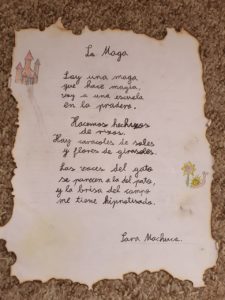 La Maga
Soy una maga
que hace magia,
voy a una escuela
en la pradera.
Hacemos hechizos
de rizos.
Hay caracoles de soles
y flores de girasoles.
Las voces del gato
se parecen a la del pato,
y la brisa del campo
me tiene hipnotizada.
Lara Machuca.